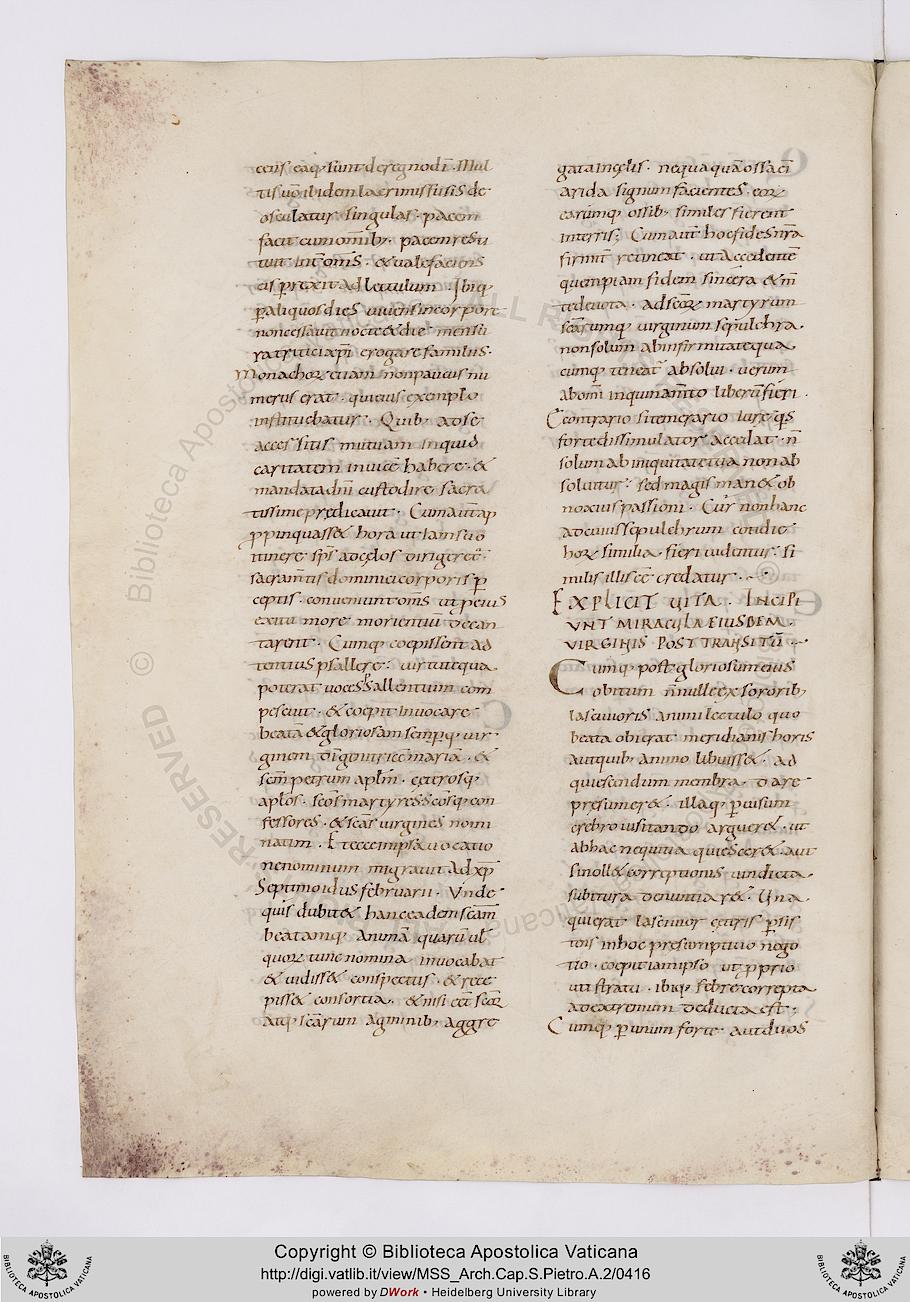 cens eaq; sunt de regno dī. Mul
tis uō ibidem lacrimis fusis de
osculatur singulas. pacem
facit cum omīb;. pacem resti
tuit int̄ omīs. & uale faciens
eis p̄rexit ad lectulum. Ibiq;
p̄ aliquos dies uiuens in corpore
non cessauit nocte & die mensu
ra tritici xp̄i erogare familiis.
Monachoꝝ etiam non paucis nu
merus erat. qui eius exemplo
instituebatur. Quib; ad se
accessitis mutuam inquid
caritatem inuicē habere. &
mandata dn̄i custodire sacra
tissime predicauit. Cum aūt ap
p̄pinquass& hora ut iam suo
itinere sp̄s ad cęlos dirigeret.
sacram̄tis dominici corporis p̄
ceptis. conueniunt om̄s ut p̄ eius
exitu more morientiū decan
tarent. Cumq; coepissent ad
tentius psallere. uirtute qua
poterat uoces psallentium com
pescuit. & coepit inuocare
beatā & gloriosam semp̄q; uir
ginem dī genitricē mariā. &
sc̄m petrum apl̄m. ceterosq;
apl̄os. sc̄os martyres sc̄osq; con
fessores. & sc̄as uirgines nomi
natim. Et ecce in ipsa uocatio
ne nominum migrauit ad xp̄m
Septimo idus februarii. Vnde
quis dubit& hanc eadem sc̄am
beatamq; animā quarū uł
quoꝝ tunc nomina inuocabat
& uidiss& conspectus. & rece
piss& consortia. & nisi cēt sc̄oꝝ
atq; sc̄arum agminib; aggre
gata in cęlis. nequaquā ossa ei
arida signum facientes. eoꝝ
earumq; ossib; similes fierent
in terris; Cum aūt hoc fides nr̄a
firmit̄ retineat. ut accedentē
quempiam fidem sincera & m̄
te deuota. ad sc̄oꝝ martyrum
sc̄arumq; uirginum sepulchra.
non solum ab infirmitate qua
cumq; teneat absolui. uerum
ab omī inquinam̄to liberū fieri.
E contrario si temerario iure q̄s
forte dissimulator accedat. n̄
solum ab iniquitate sua non ab
soluitur. sed magis man& ob
noxius passioni. Cur non hanc
ad cuius sepulchrum cotidie
hoꝝ similia fieri uidentur. si
milis illis eē credatur.
EXPLICIT UITA. INCIPI
VNT MIRACULA EIUSDEM.
VIRGINIS POST TRANSITŪ
Cumq; post gloriosum eius
obitum n̄nulle ex sororib;
lasciuioris animi lectulo quo
beata obierat meridianis horis
aut quib; animo libuiss&. ad
quiescendum membra dare
presumer&. illaq; p̄ uisum
crebro uisitando arguer&. ut
ab hac nequitia quiescer&. aut
si noll& correptionis uindicta
subitura denuntiar&. Una
quę erat lasciuior ceteris p̄sis
tens in hoc presumptiuo nego
tio. coepit iam ipso ut p̄prio
uti stratu. ibiq; febre correpta
ad extremum deducta est;
Cumq; p̄ unum forte aut duos
Copyright © Biblioteca Apostolica Vaticana
http://digi.vatlib.it/view/MSS_Arch.Cap.S.Pietro.A.2/0416
powered by DWork • Heidelberg University Library